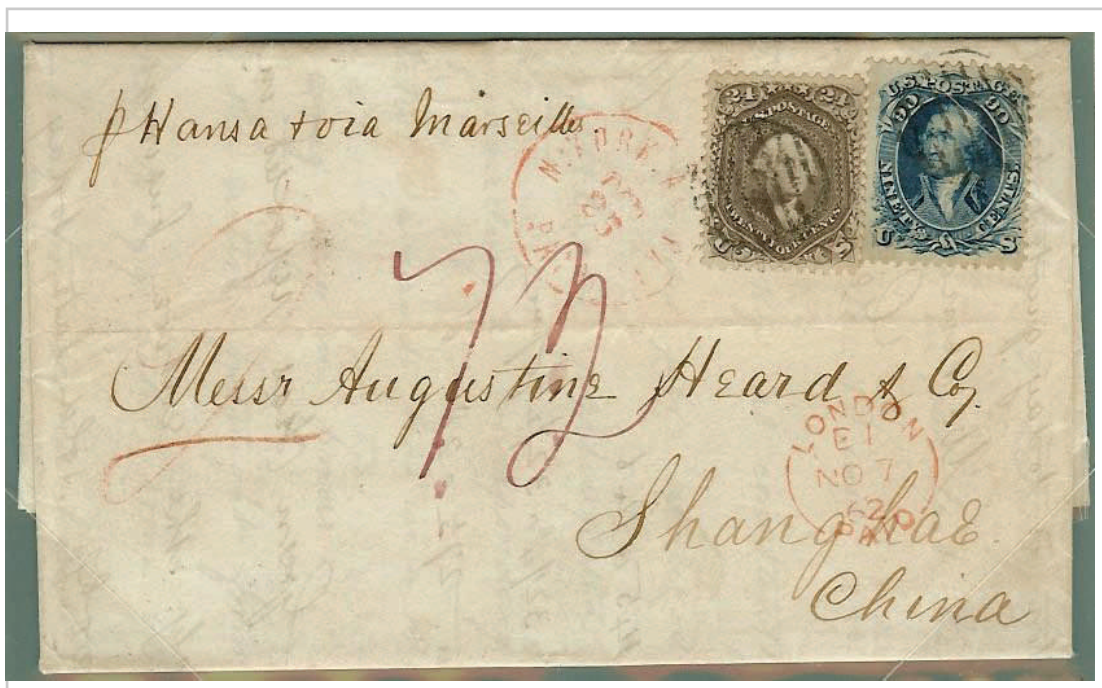 p Hansa + via Marseilles
N. YORK
OCT
25
24 24
U.S. POSTAGE
TWENTY FOUR CENTS
U S
U.S. POSTAGE
90 90
NINETY CENTS.
U S
Messr Augustine Heard & Co.
LONDON
E1
NO 7
62
PAID
Shanghae.
China